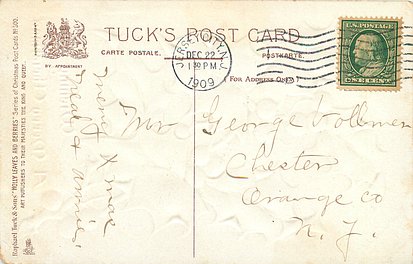 TUCK'S POST CARD
CARTE POSTALE.
POSTKARTE.
BY APPOINTMENT
(FOR ADDRESS ONLY)
DEC 22
1909
U.S. POSTAGE
ONE CENT
Merry Xmas
Mr George Vollmer
Chester
Orange Co
N. Y.
Raphael Tuck & Sons' "HOLLY LEAVES AND BERRIES" Series of Christmas Post Cards
ART PUBLISHERS TO THEIR MAJESTIES THE KING AND QUEEN